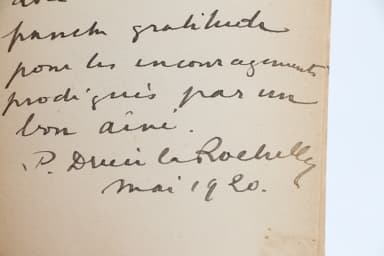 gratitude
pour les encouragements
prodigués par un
bon aîné.
P. Drieu la Rochelle
mai 1920.